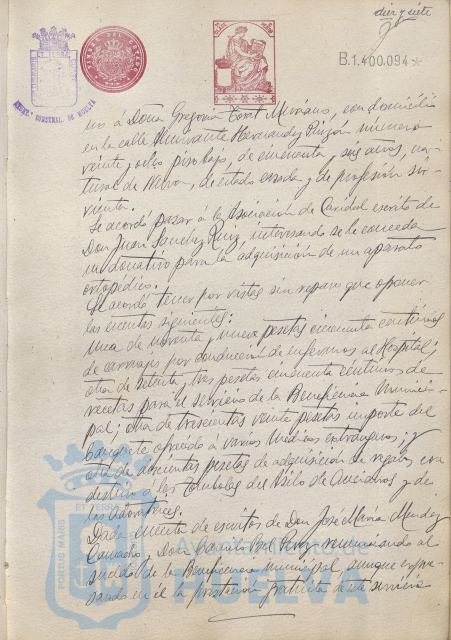 diez y siete
B.1.400.094
TIMBRE DEL ESTADO
no á Doña Gregoria Mirano, con domicilio
en la calle Almirante Hernandez Pinzón número
veinte y ocho piso bajo, de cincuenta y seis años, na-
tural de, de estado casada y de profesión sir-
vienta.
Se acordó pasar á la Asociación de Caridad escrito de
Don Juan Sanchez Ruiz, interesando se le conceda
un donativo para la adquisición de un aparato
ortopédico.
Se acordó tener por vistas sin reparo que oponer
las cuentas siguientes:
Una de noventa y nueve pesetas cincuenta centimos
de carruajes por conducción de enfermos al Hospital;
otra de setenta y tres pesetas cincuenta centimos de
recetas para el servicio de la Beneficencia Munici-
pal; otra de trescientas veinte pesetas importe del
banquete ofrecido á varios Medicos extranjeros; y
otra de doscientas pesetas de adquisición de regalos con
destino á las tombolas del Asilo de Ancianos y de
las Adoratrices.
Dada cuenta de escritos de Don José María Mendez
Camacho y Don Camilo Bel renunciando al
sueldo de la Beneficencia municipal aunque expre-
sando en él la prestación gratuita de este servicio
PORTUS MARIS
ET TERRAE
Ayuntamiento de
HUELVA